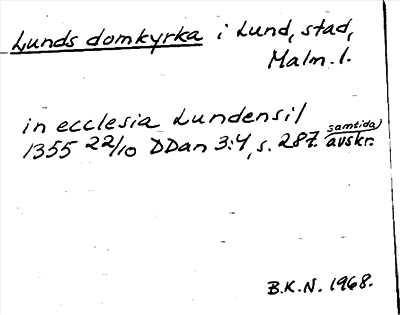 Lunds domkyrka i Lund, stad,
Malm. l.
in ecclesia Lundensi/
1355 22/10 DDan 3:4, s. 287. samtida avskr.
B.K.N. 1968.